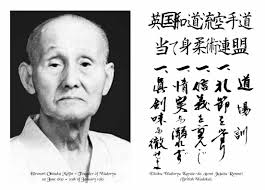 英国和道流空手道
当て身柔術連盟
道場訓
一、礼節を
一、信義を重んじ
一、情実に溺れず
一、真剣味に徹せよ
Hironori Ohtsuka Meijin - Founder of Wadoryu
1st June 1892 - 29th of January 1982
(Eikoku Wadoryu Karate-do Atemi Jujutsu Renmei)
(British Wadokai)